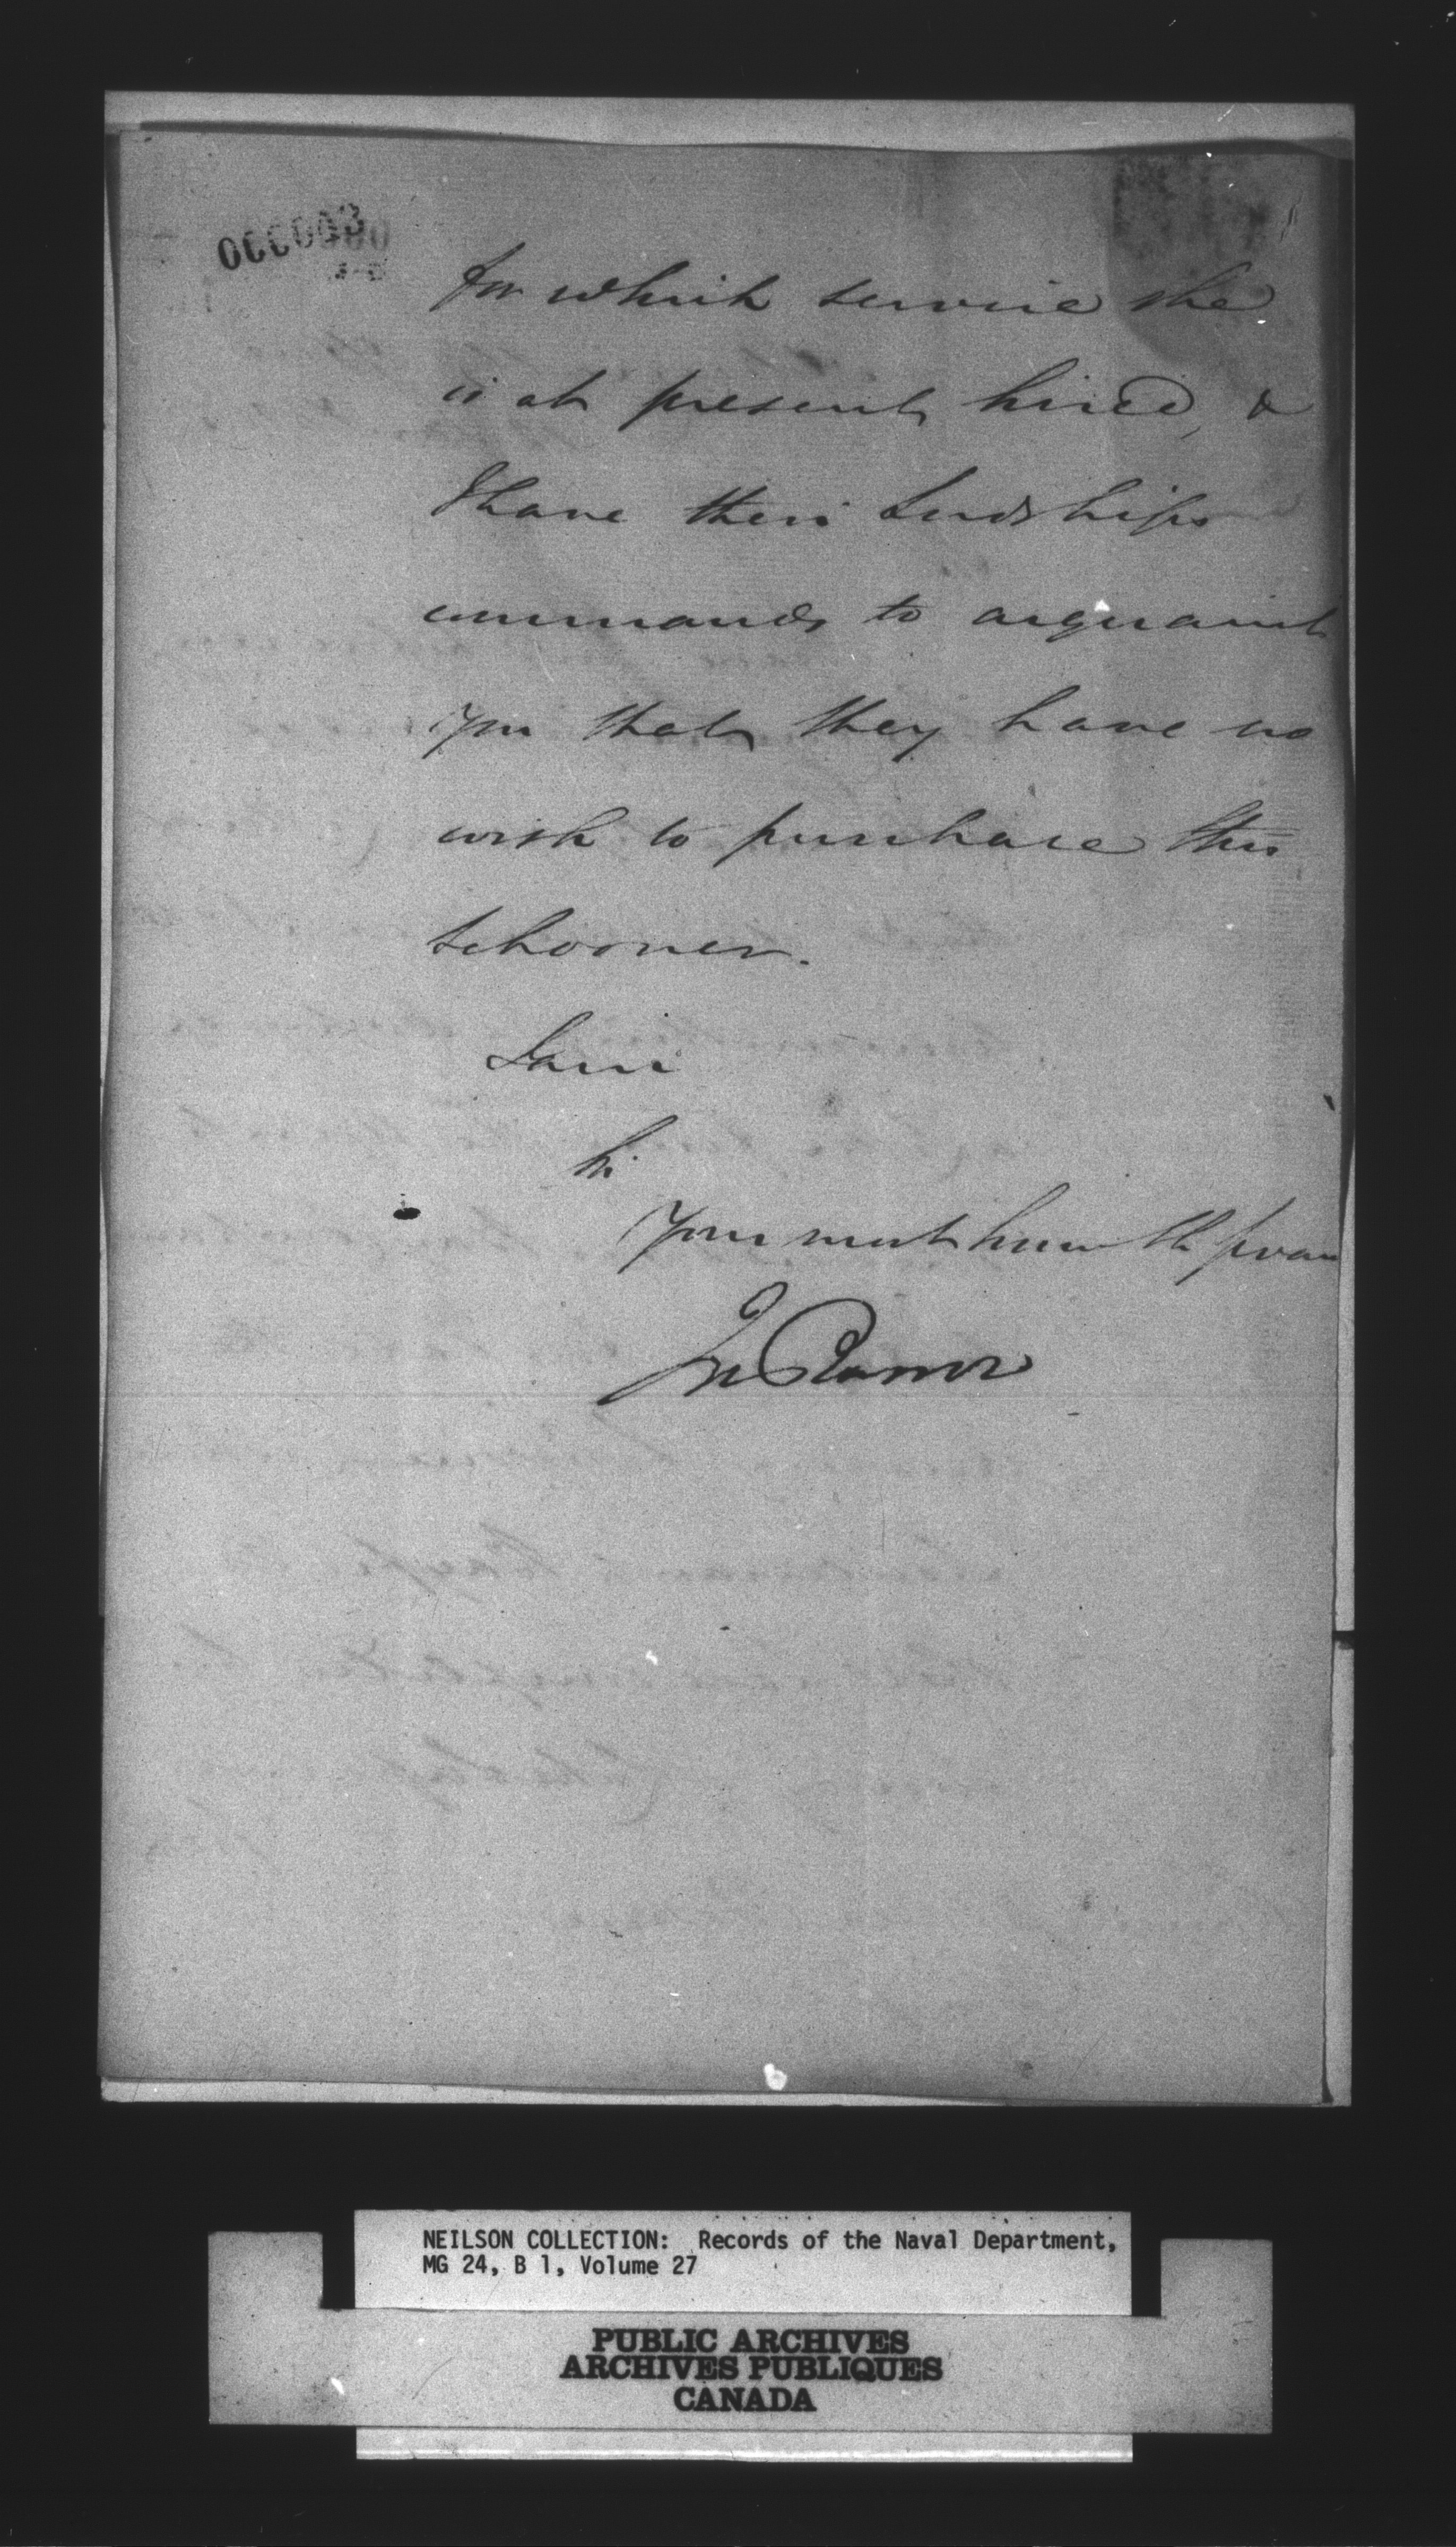 for which service she
is at present hired, &
I have their Lordships
commands to acquaint
you that they have no
wish to purchase this
schooner.
I am
Sir
Your most humble Servan
Jn Barrow
NEILSON COLLECTION: Records of the Naval Department,
MG 24, B 1, Volume 27
PUBLIC ARCHIVES
ARCHIVES PUBLIQUES
CANADA